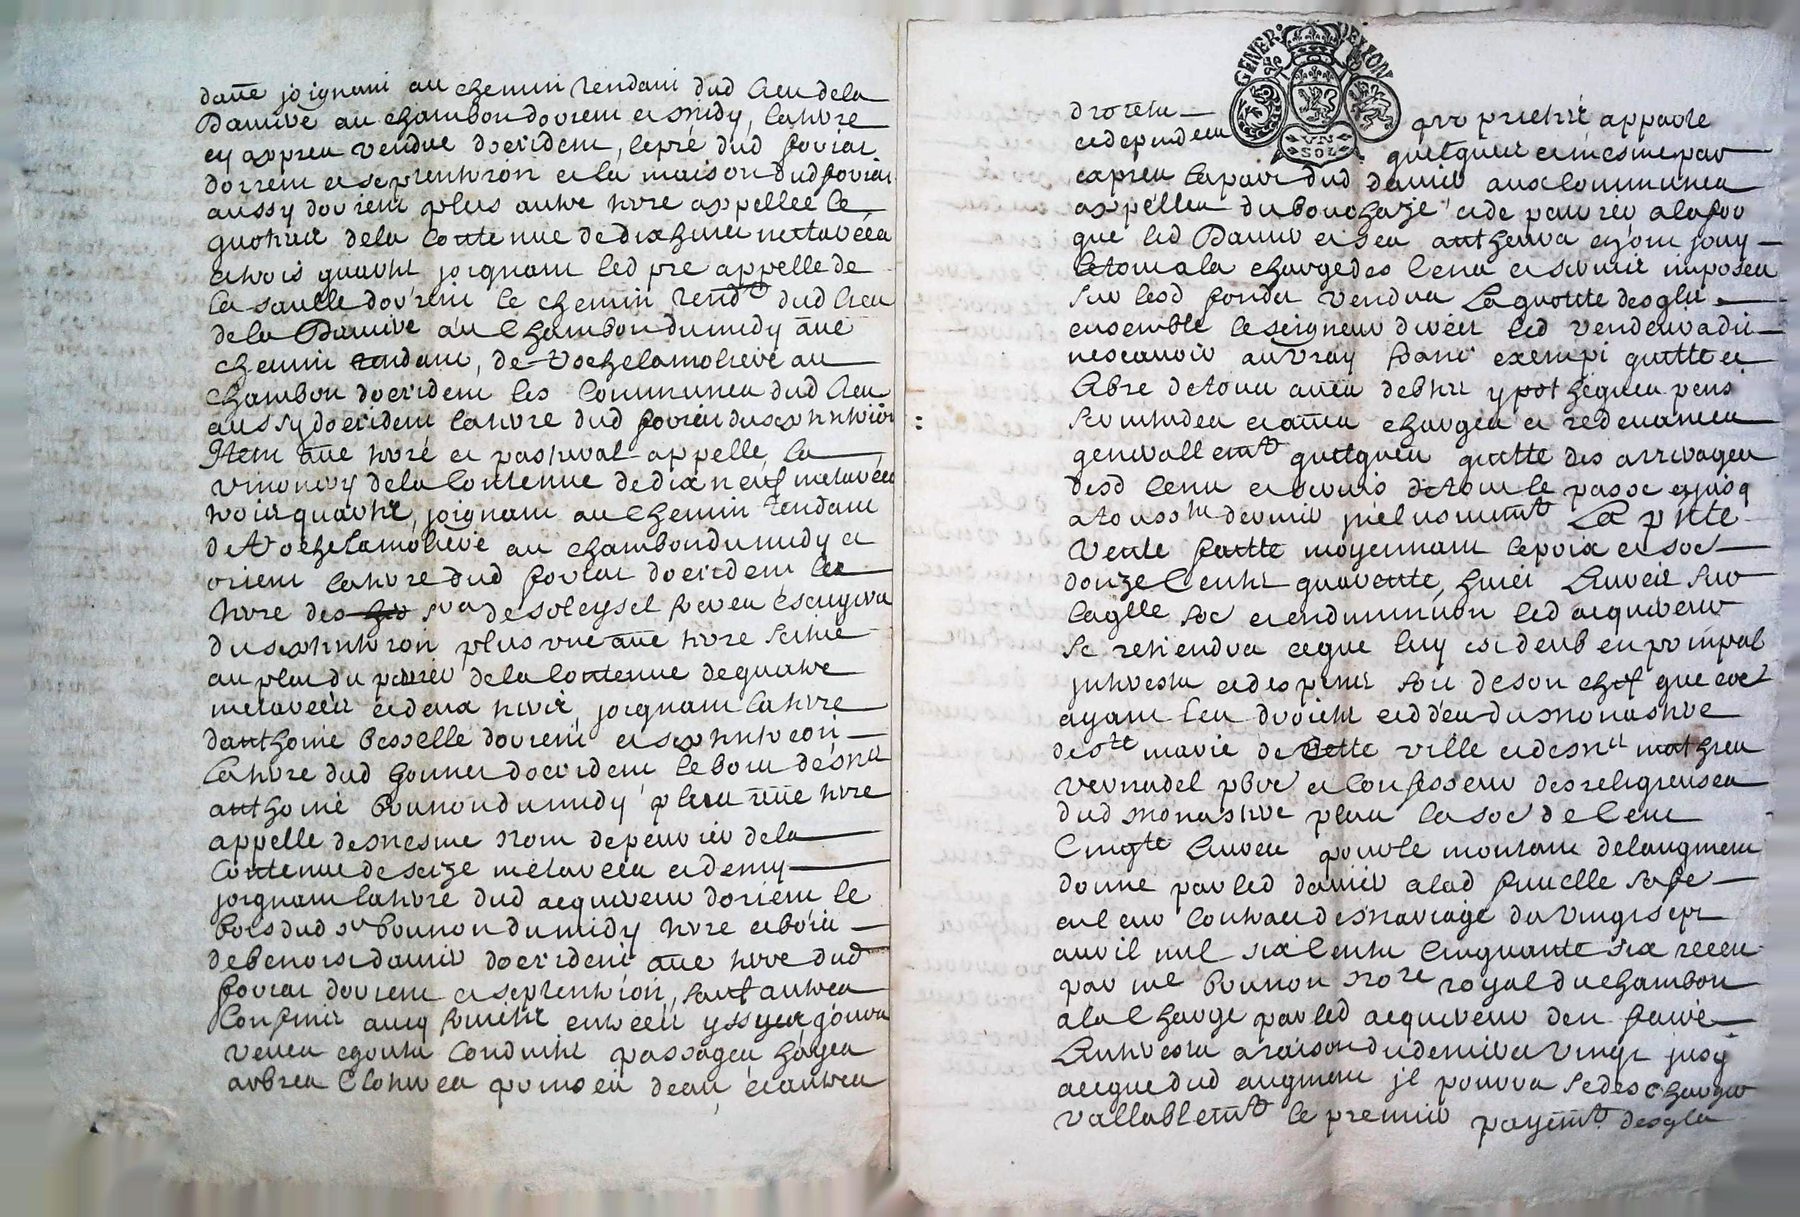 dane joignant au chemin tendant dud lieu de la
Damive au chambon dorient et midy, la terre
cy apprea vendue doccident, le pré dud fovial
dorient et septentrion et la maison dud fovial
aussy dorient plus autre terre appellee le
de la Contenue de dix huict mettavéea
et trois quartz joignant led pré appelle de
la saulle dorient le chemin tendt dud lieu
de la Damive au Chambon du midy aue
chemin tendant, de Rochelamolieve au
chambon doccident les Communea dud lieu
aussy doccident la terre dud fovial du septentrion
Item aue terre et pasturat appelle la
de la Contenue de dix neuf metavéea
trois quartz, joignant au chemin tendant
de Rochelamolieve au chambon du midy et
orient la terre dud fovial doccident les
terre des srs de soleysel freres escuyers
du septentrion plus une aue terre scitue
au plat du périer de la Contenue de quatre
metavéea et deux tiers, joignant la terre
danthoine Besselle dorient et septentrion
la terre dud gonner doccident le boia de Mre
anthoine Bounon du midy, plus une terre
appelle de mesme nom de perrier de la
Contenue de seize metavéea et demy
joignant la terre dud acquereur dorient le
bois dud sr Bounon du midy terre et boia
de benoist damier doccident aue terre dud
fovial dorient et septentrion, sauf autrea
Confinz avecq fruictz entréea yssuea
egoutz Conduictz passagea hayea
arbrea Clotureа prinsea deau, et autrea
droictz
et dependcea proprietté appavte
GENER. DE LYON
UN SOL
quelquea et mesme par
exprea la part dud damier aux Communea
appellea du bouchage et de perrier a la for
que led Damier et sea autheurs en ont jouy
le tout a la charge des Cens et servis imposea
sur lesd fondz vendua la quotité desqls
ensemble le seigneur direct led vendeur a dit
ne scavoir au vray franc exempt quitte et
libre de toua auea debtz ypothequea pens
servitudea et auea chargea et redevancea
generallemt quelquea quitte des arreragea
desd Cens et servis de tout le passe jusq
a toussts dernier inclusivemt La pnte
Vente faitte moyennant le prix et soe
douze Centz quarente huict Livres sur
laqlle soe et en diminution led acquereur
se retiendra ce que luy est deub en prinpal
interestz et despens soit de son chef que coe
ayant leu droictz et ced dea du monastere
de ste marie de Cette ville et de Mre mathieu
Vernadel pbre et Confesseur des religieusea
dud monastere plus la soe de Cent
Cinqte Livrea pour le montant de laugment
donne par led damier a lad fiuelle sa fe
en leur Contract de mariage du vingt sept
avril mil six Centz Cinquante six receu
par me Bounon nore royal du chambon
a la Charge par led acquereur den faire
Linterestz a raison du denier vingt jusq
ace que dud augment jl pourra se descharger
vallablemt le premier payemt desqls